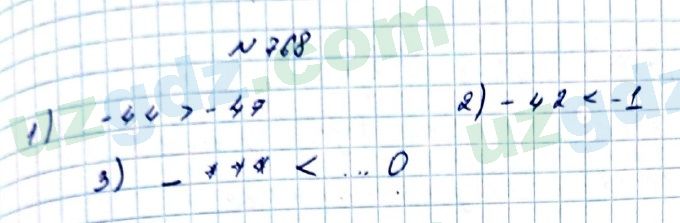 № 768
1) -44 > -47
2) - 42 < -1
3) - *** < ... 0
uzgdz.com